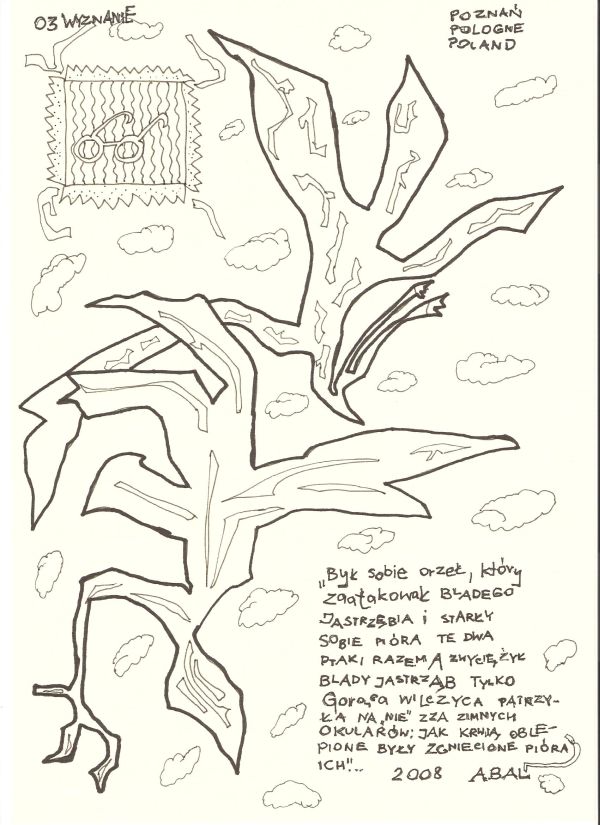 03 WYZNANIE
POZNAŃ
POLOGNE
POLAND
„Był sobie orzeł, który
zaatakował BLADEGO
JASTRZĘBIA i STARŁY
SOBIE PIÓRA TE DWA
PTAKI RAZEM A ZWYCIĘŻYŁ
BLADY JASTRZĄB TYLKO
Gorąca WILCZYCA PATRZY-
ŁA NA „NIE" ZZA ZIMNYCH
OKULARÓW; JAK KRWIĄ OBLE-
PIONE BYŁY ZGNIECIONE PIÓRA
ICH"...
2008 A.BAL